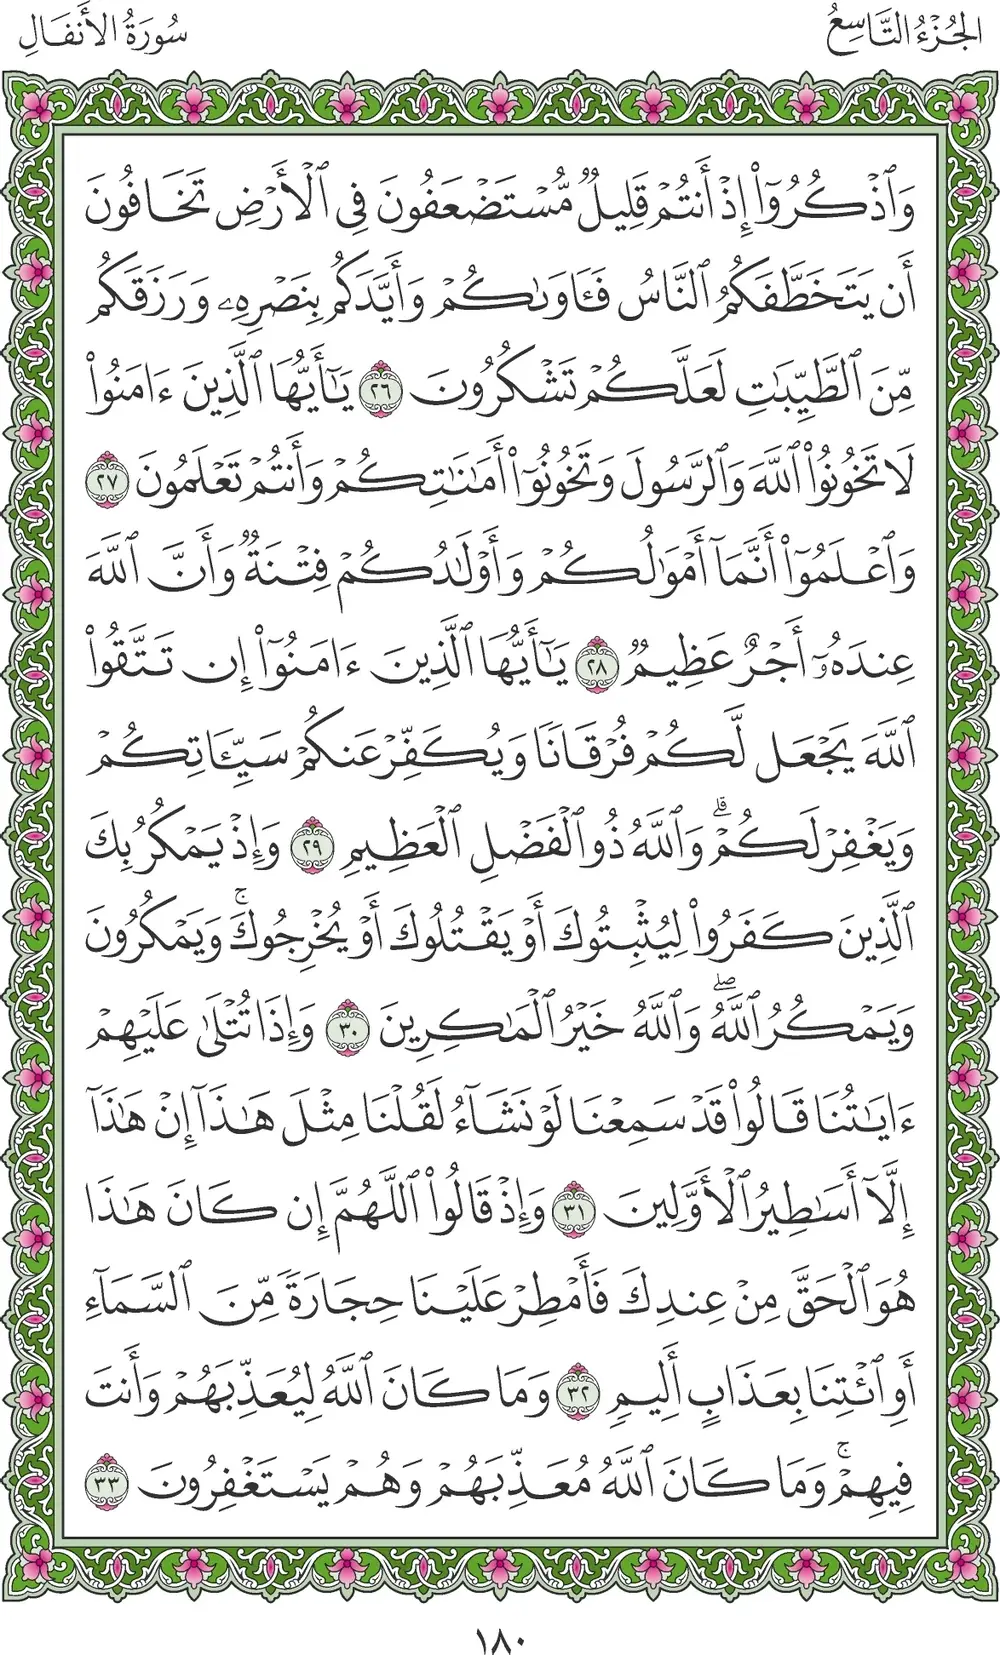 الجُزْءُ التَّاسِعُ
سُورَةُ الأَنفَالِ
وَٱذْكُرُوٓا۟ إِذْ أَنتُمْ قَلِيلٌ مُّسْتَضْعَفُونَ فِى ٱلْأَرْضِ تَخَافُونَ
أَن يَتَخَطَّفَكُمُ ٱلنَّاسُ فَـَٔاوَىٰكُمْ وَأَيَّدَكُم بِنَصْرِهِۦ وَرَزَقَكُم
مِّنَ ٱلطَّيِّبَـٰتِ لَعَلَّكُمْ تَشْكُرُونَ ٢٦ يَـٰٓأَيُّهَا ٱلَّذِينَ ءَامَنُوا۟
لَا تَخُونُوا۟ ٱللَّهَ وَٱلرَّسُولَ وَتَخُونُوٓا۟ أَمَـٰنَـٰتِكُمْ وَأَنتُمْ تَعْلَمُونَ ٢٧
وَٱعْلَمُوٓا۟ أَنَّمَآ أَمْوَٰلُكُمْ وَأَوْلَـٰدُكُمْ فِتْنَةٌ وَأَنَّ ٱللَّهَ
عِندَهُۥٓ أَجْرٌ عَظِيمٌ ٢٨ يَـٰٓأَيُّهَا ٱلَّذِينَ ءَامَنُوٓا۟ إِن تَتَّقُوا۟
ٱللَّهَ يَجْعَل لَّكُمْ فُرْقَانًا وَيُكَفِّرْ عَنكُمْ سَيِّـَٔاتِكُمْ
وَيَغْفِرْ لَكُمْ ۗ وَٱللَّهُ ذُو ٱلْفَضْلِ ٱلْعَظِيمِ ٢٩ وَإِذْ يَمْكُرُ بِكَ
ٱلَّذِينَ كَفَرُوا۟ لِيُثْبِتُوكَ أَوْ يَقْتُلُوكَ أَوْ يُخْرِجُوكَ ۚ وَيَمْكُرُونَ
وَيَمْكُرُ ٱللَّهُ ۖ وَٱللَّهُ خَيْرُ ٱلْمَـٰكِرِينَ ٣٠ وَإِذَا تُتْلَىٰ عَلَيْهِمْ
ءَايَـٰتُنَا قَالُوا۟ قَدْ سَمِعْنَا لَوْ نَشَآءُ لَقُلْنَا مِثْلَ هَـٰذَآ إِنْ هَـٰذَآ
إِلَّآ أَسَـٰطِيرُ ٱلْأَوَّلِينَ ٣١ وَإِذْ قَالُوا۟ ٱللَّهُمَّ إِن كَانَ هَـٰذَا
هُوَ ٱلْحَقَّ مِنْ عِندِكَ فَأَمْطِرْ عَلَيْنَا حِجَارَةً مِّنَ ٱلسَّمَآءِ
أَوِ ٱئْتِنَا بِعَذَابٍ أَلِيمٍ ٣٢ وَمَا كَانَ ٱللَّهُ لِيُعَذِّبَهُمْ وَأَنتَ
فِيهِمْ ۚ وَمَا كَانَ ٱللَّهُ مُعَذِّبَهُمْ وَهُمْ يَسْتَغْفِرُونَ ٣٣
١٨٠